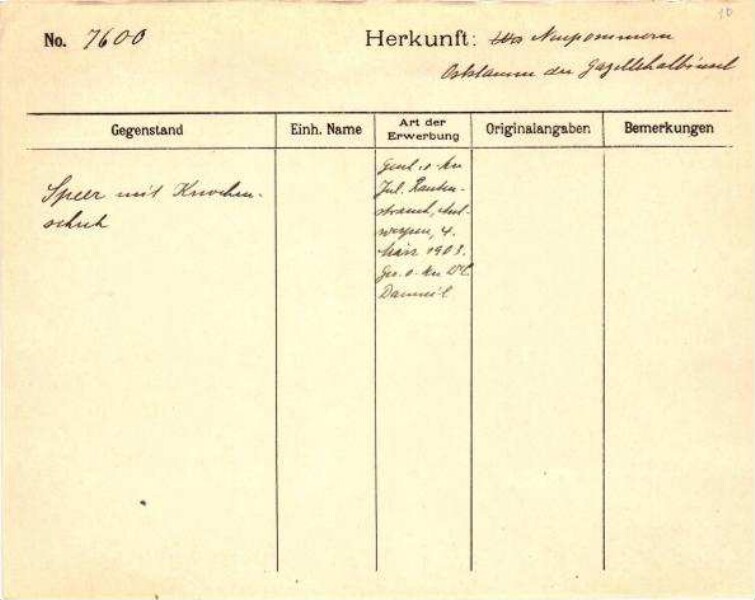 10
No. 7600
Herkunft: Neupommern
Oststamm der Gazellehalbinsel
Gegenstand
Einh. Name
Art der Erwerbung
Originalangaben
Bemerkungen
Speer mit Knochen-
schuh
Gesch. v. Hrn
Jul. Rauten-
strauch, Ant-
werpen, 4.
März 1903.
Ges. v. Hrn